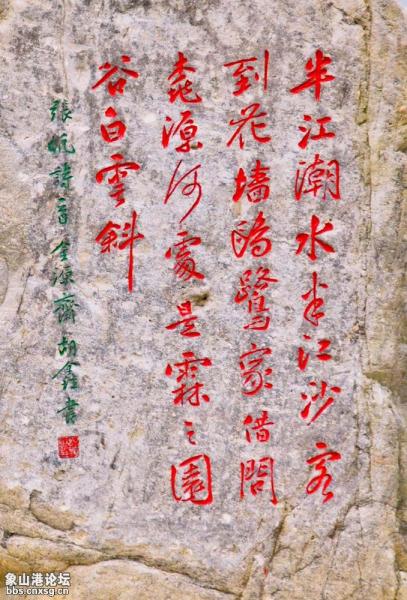 半江潮水半江沙客
到花墙鸥鹭家借問
桃源何處是霖々園
谷白雲斜
張帆詩首金源齋胡鑫書
象山港论坛
bbs.cnxsg.cn